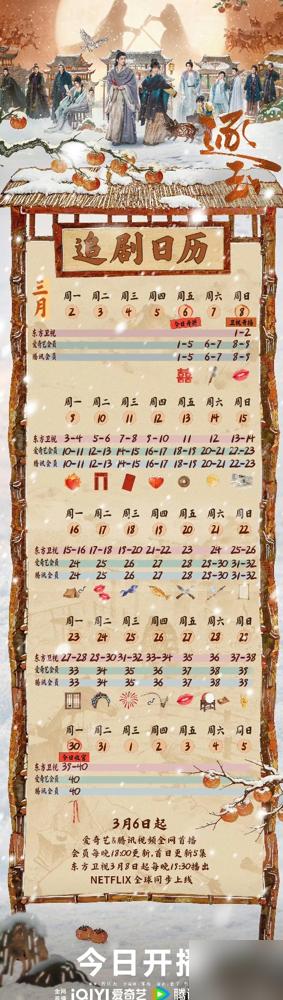 逐玉
追剧日历
三月
周一 周二 周三 周四 周五 周六 周日
2 3 4 5 6 7 8
今日开播 卫视开播
东方卫视 1-2
爱奇艺会员 1-5 6-7 8-9
腾讯会员 1-5 6-7 8-9
周一 周二 周三 周四 周五 周六 周日
9 10 11 12 13 14 15
东方卫视 3-4 5-6 7-8 9-10 11 12 13-14
爱奇艺会员 10-11 12-13 14-15 16-17 18-19 20-21 22-23
腾讯会员 10-11 12-13 14-15 16-17 18-19 20-21 22-23
周一 周二 周三 周四 周五 周六 周日
16 17 18 19 20 21 22
东方卫视 15-16 17-18 19-20 21-22 23 24 25-26
爱奇艺会员 24 25 26 27 28 29-30 31-32
腾讯会员 24 25 26 27 28 29-30 31-32
周一 周二 周三 周四 周五 周六 周日
23 24 25 26 27 28 29
东方卫视 27-28 29-30 31-32 33-34 35 36 37-38
爱奇艺会员 33 34 35 36 37 38 39
腾讯会员 33 34 35 36 37 38 39
周一 周二 周三 周四 周五 周六 周日
30 31 1 2 3 4 5
今日收官
东方卫视 39-40
爱奇艺会员 40
腾讯会员 40
3月6日起
爱奇艺&腾讯视频全网首播
会员每晚18:00更新,首日更新5集
东方卫视3月8日起每晚19:30播出
NETFLIX全球同步上线
今日开播
iQIYI爱奇艺